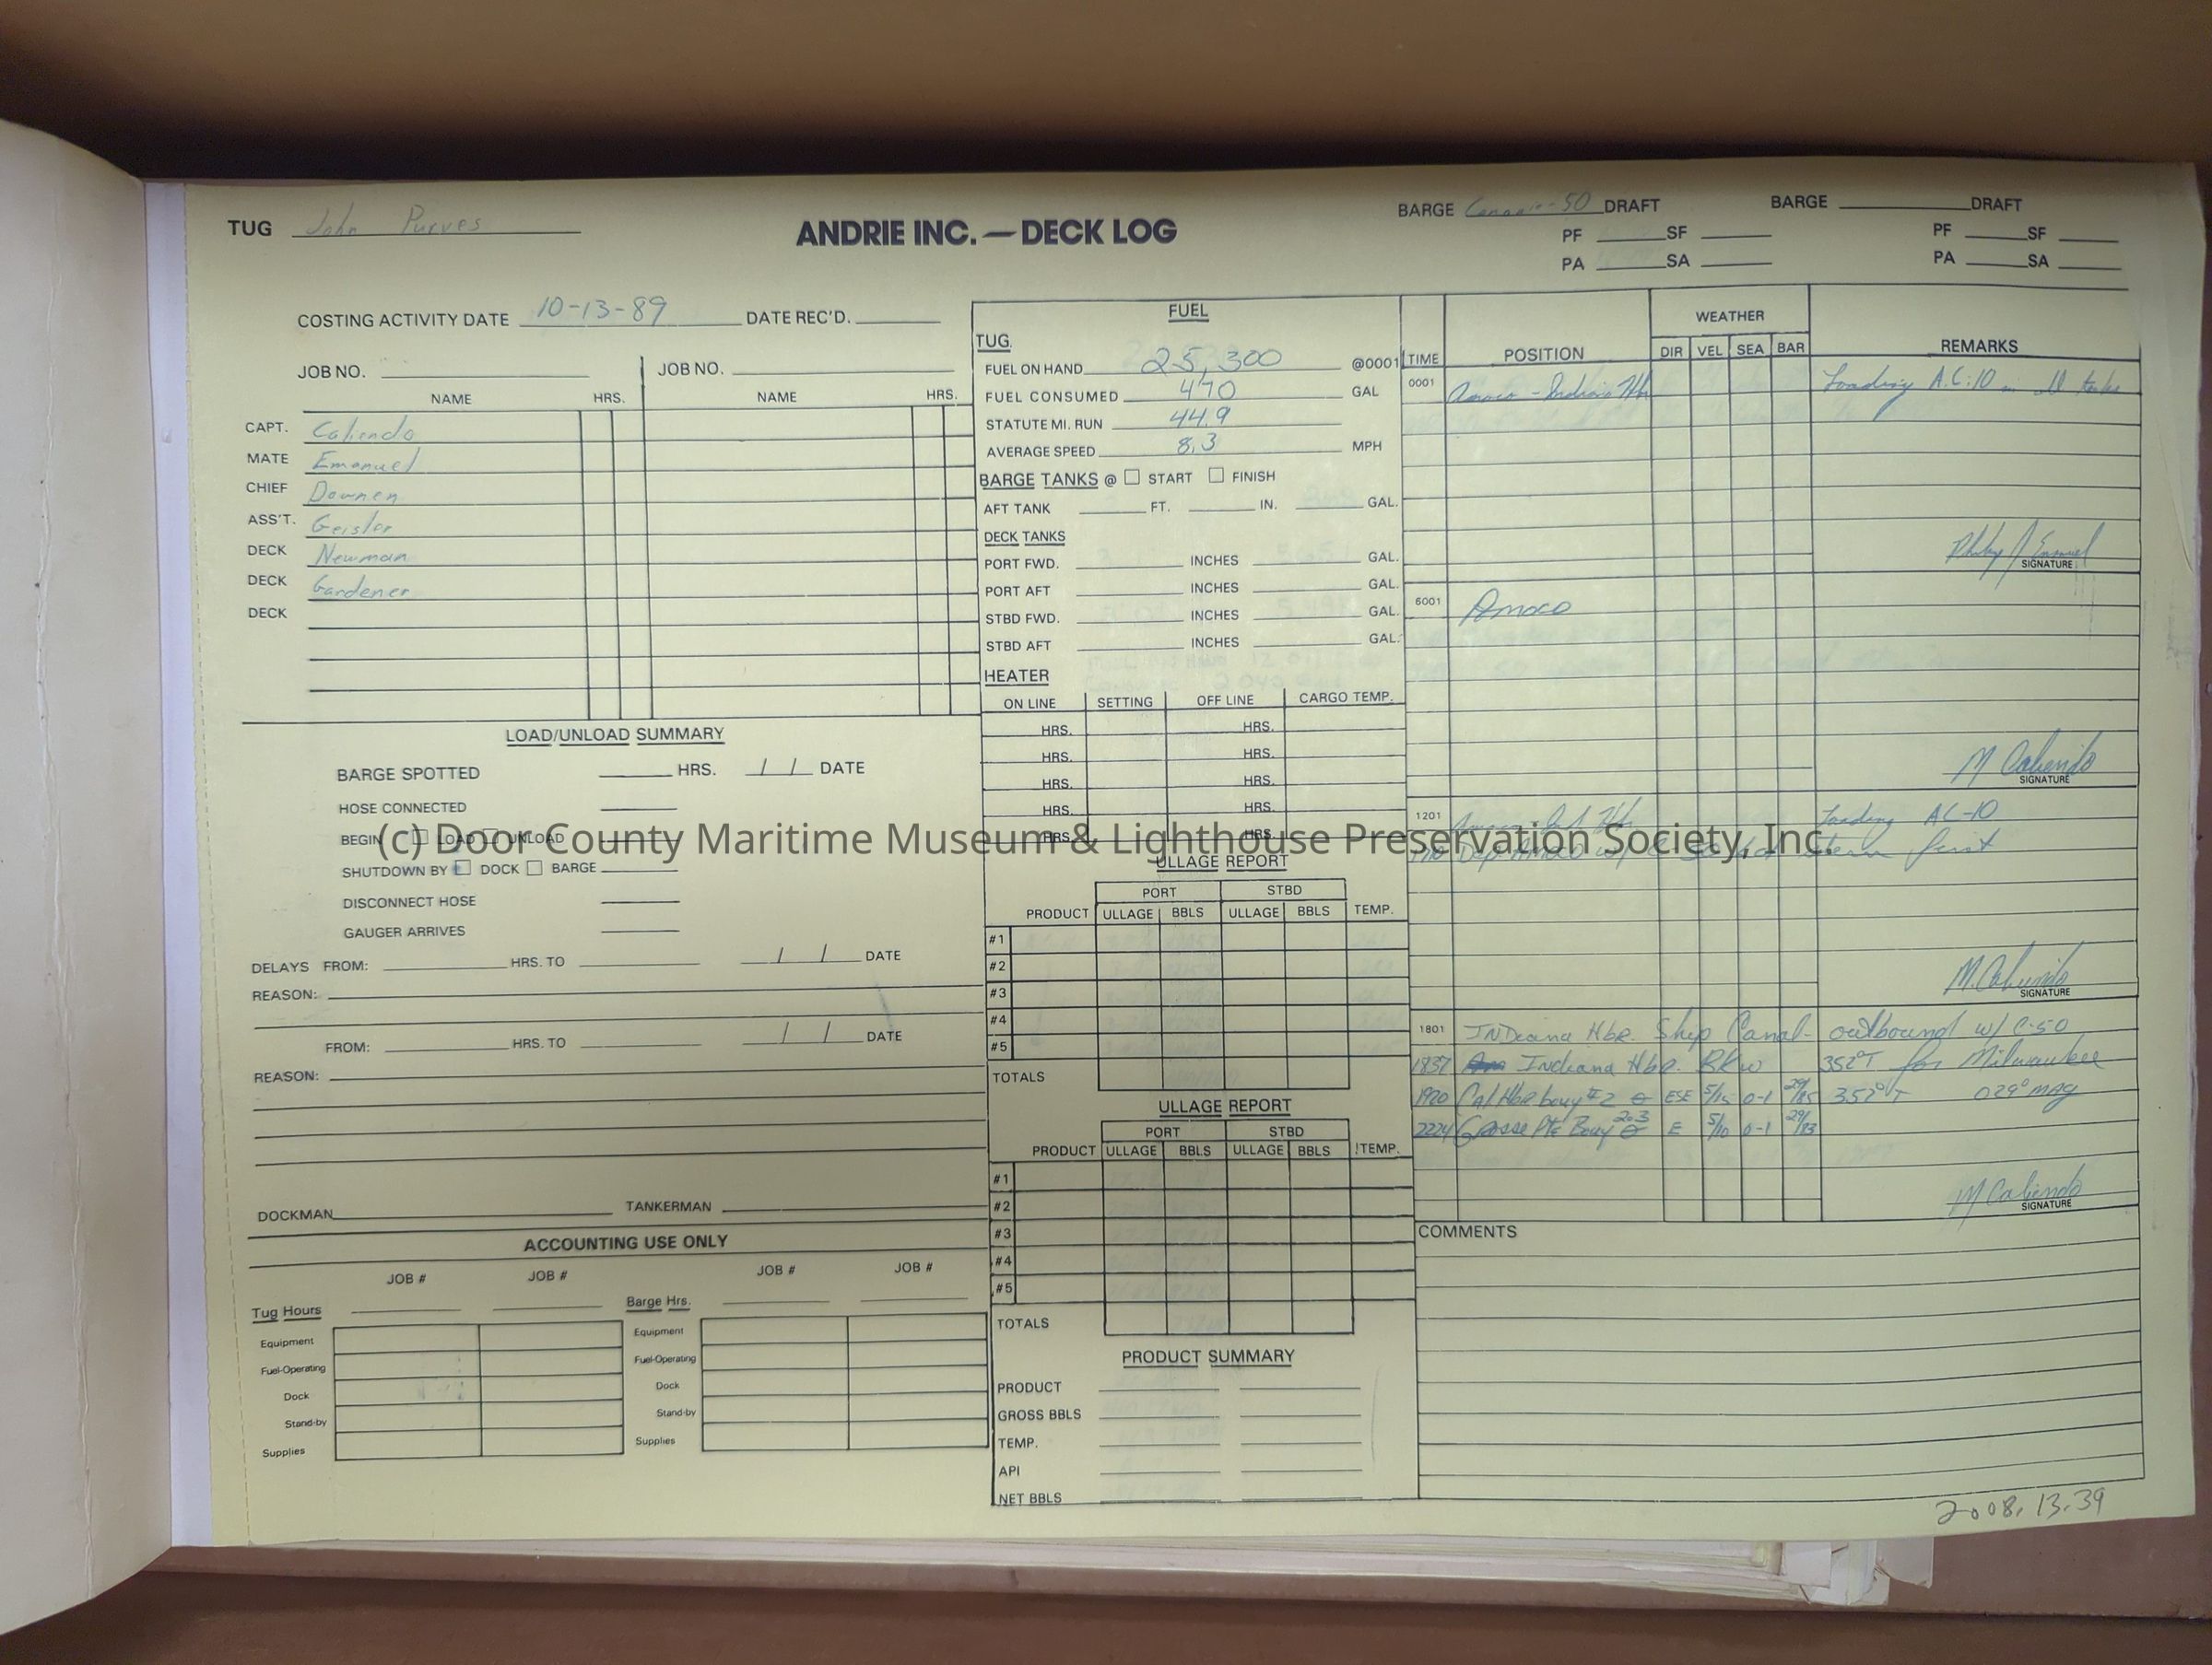 TUG John Purves
ANDRIE INC. — DECK LOG
BARGE 50 DRAFT
PF SF
PA SA
BARGE DRAFT
PF SF
PA SA
COSTING ACTIVITY DATE 10-13-89 DATE REC'D.
JOB NO. JOB NO.
NAME HRS. NAME HRS.
CAPT. Caliendo
MATE Emanuel
CHIEF Downen
ASS'T. Geisler
DECK Newman
DECK Gardener
DECK
LOAD/UNLOAD SUMMARY
BARGE SPOTTED HRS. / / DATE
HOSE CONNECTED
BEGIN LOAD UNLOAD
SHUTDOWN BY DOCK BARGE
DISCONNECT HOSE
GAUGER ARRIVES
DELAYS FROM: HRS. TO / / DATE
REASON:
FROM: HRS. TO / / DATE
REASON:
DOCKMAN TANKERMAN
ACCOUNTING USE ONLY
JOB # JOB # JOB # JOB #
Tug Hours Barge Hrs.
Equipment Equipment
Fuel-Operating Fuel-Operating
Dock Dock
Stand-by Stand-by
Supplies Supplies
FUEL
TUG
FUEL ON HAND 25,300 @0001
FUEL CONSUMED 470 GAL
STATUTE MI. RUN 44.9
AVERAGE SPEED 8.3 MPH
BARGE TANKS @ START FINISH
AFT TANK FT. IN. GAL.
DECK TANKS
PORT FWD. INCHES GAL.
PORT AFT INCHES GAL.
STBD FWD. INCHES GAL.
STBD AFT INCHES GAL.
HEATER
ON LINE SETTING OFF LINE CARGO TEMP.
HRS. HRS.
HRS. HRS.
HRS. HRS.
HRS. HRS.
HRS. HRS.
ULLAGE REPORT
PORT STBD
PRODUCT ULLAGE BBLS ULLAGE BBLS TEMP.
#1
#2
#3
#4
#5
TOTALS
ULLAGE REPORT
PORT STBD
PRODUCT ULLAGE BBLS ULLAGE BBLS TEMP.
#1
#2
#3
#4
#5
TOTALS
PRODUCT SUMMARY
PRODUCT
GROSS BBLS
TEMP.
API
NET BBLS
WEATHER
TIME POSITION DIR VEL SEA BAR REMARKS
0001 Amoco - Indiana Hbr Loading A.C.-10 tanks
SIGNATURE
6001 Amoco
M Caliendo
SIGNATURE
1201 Amoco Ind Hbr Loading AC-10
Dep Amoco w/ C 50 stern first
M. Caliendo
SIGNATURE
1801 INDiana Hbr. Ship Canal - outbound w/ C-50
1837 Indiana Hbr. BKW 352°T for Milwaukee
1920 Cal Hbr bouy #2 ESE 5/15 0-1 29/85 352°T 029° MAG
2224 Grosse Pte Bouy 2.3 E 5/10 0-1 29/83
M Caliendo
SIGNATURE
COMMENTS
2008.13.39
(c) Door County Maritime Museum & Lighthouse Preservation Society, Inc.